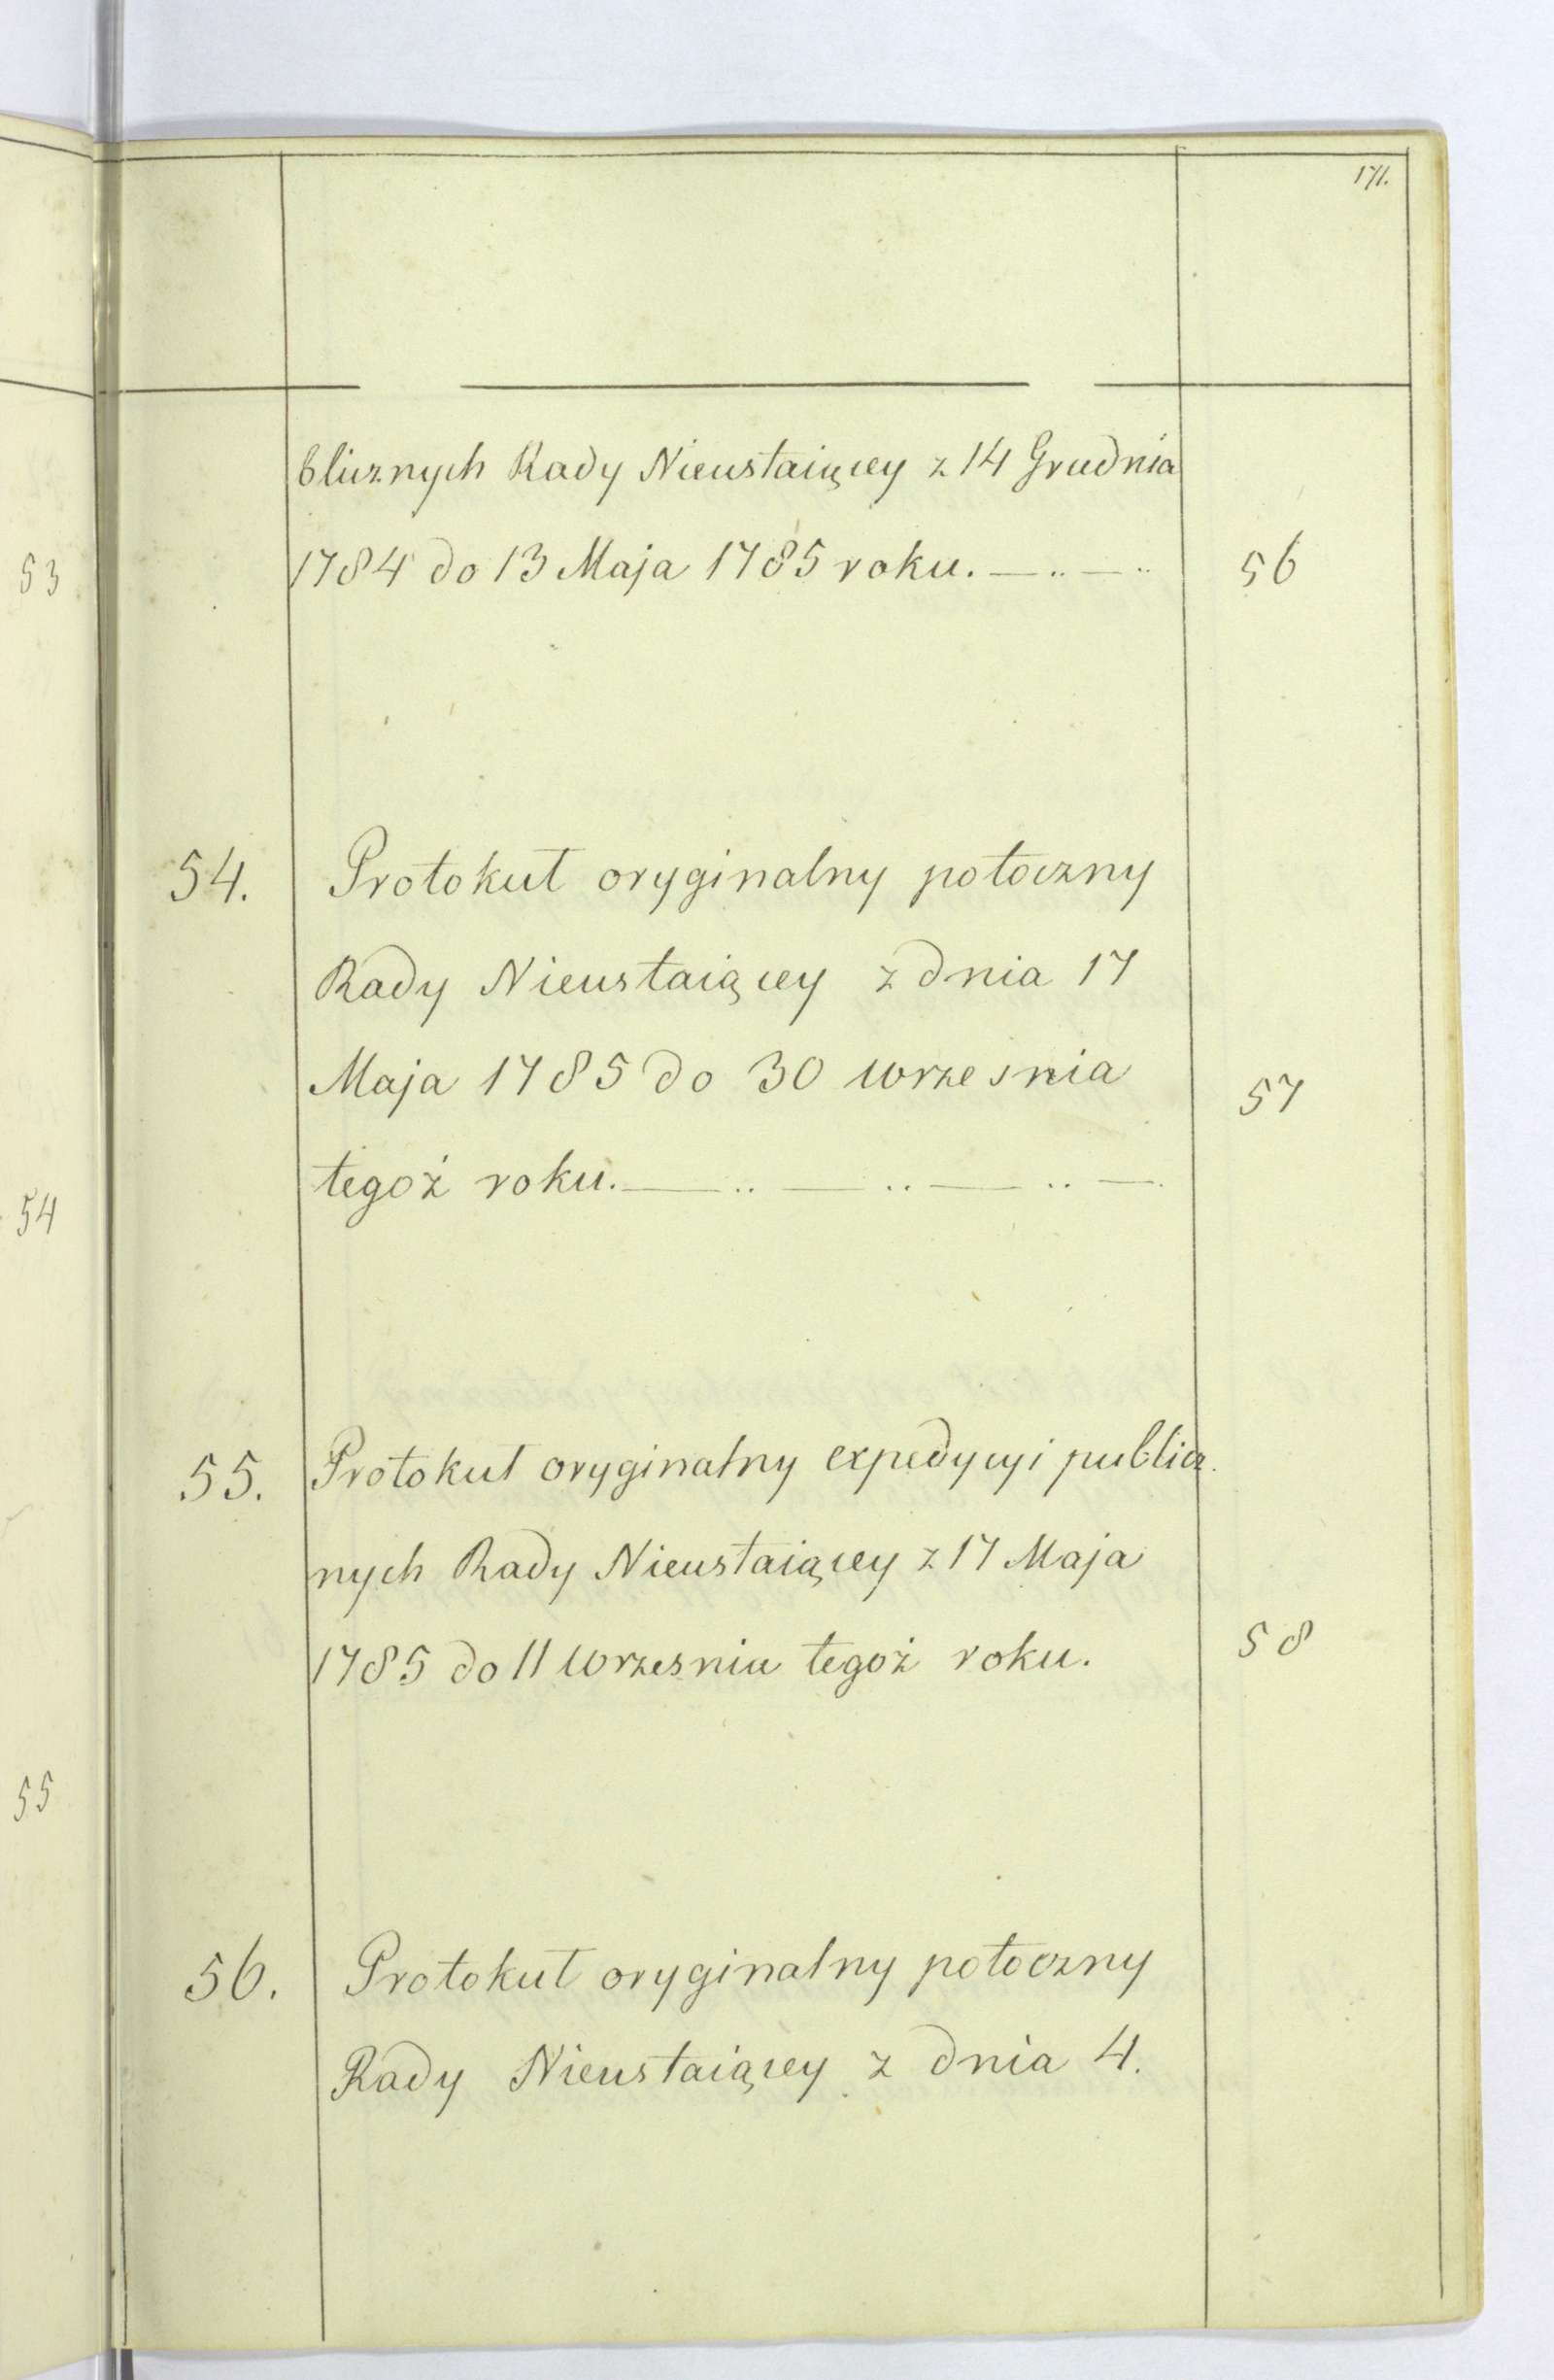 171.
blicznych Rady Nieustaiącey z 14 Grudnia
1784 do 13 Maja 1785 roku. — .. — ..
56
53
54.
Protokuł oryginalny potoczny
Rady Nieustaiącey z dnia 17
Maja 1785 do 30 wrzesnia
57
tegoż roku. — .. — .. — .. — .
54
55.
Protokuł oryginalny expedycyi publicz.
nych Rady Nieustaiącey z 17 Maja
1785 do 11 Wrzesnia tegoż roku.
58
55
56.
Protokuł oryginalny potoczny
Rady Nieustaiącey z dnia 4.